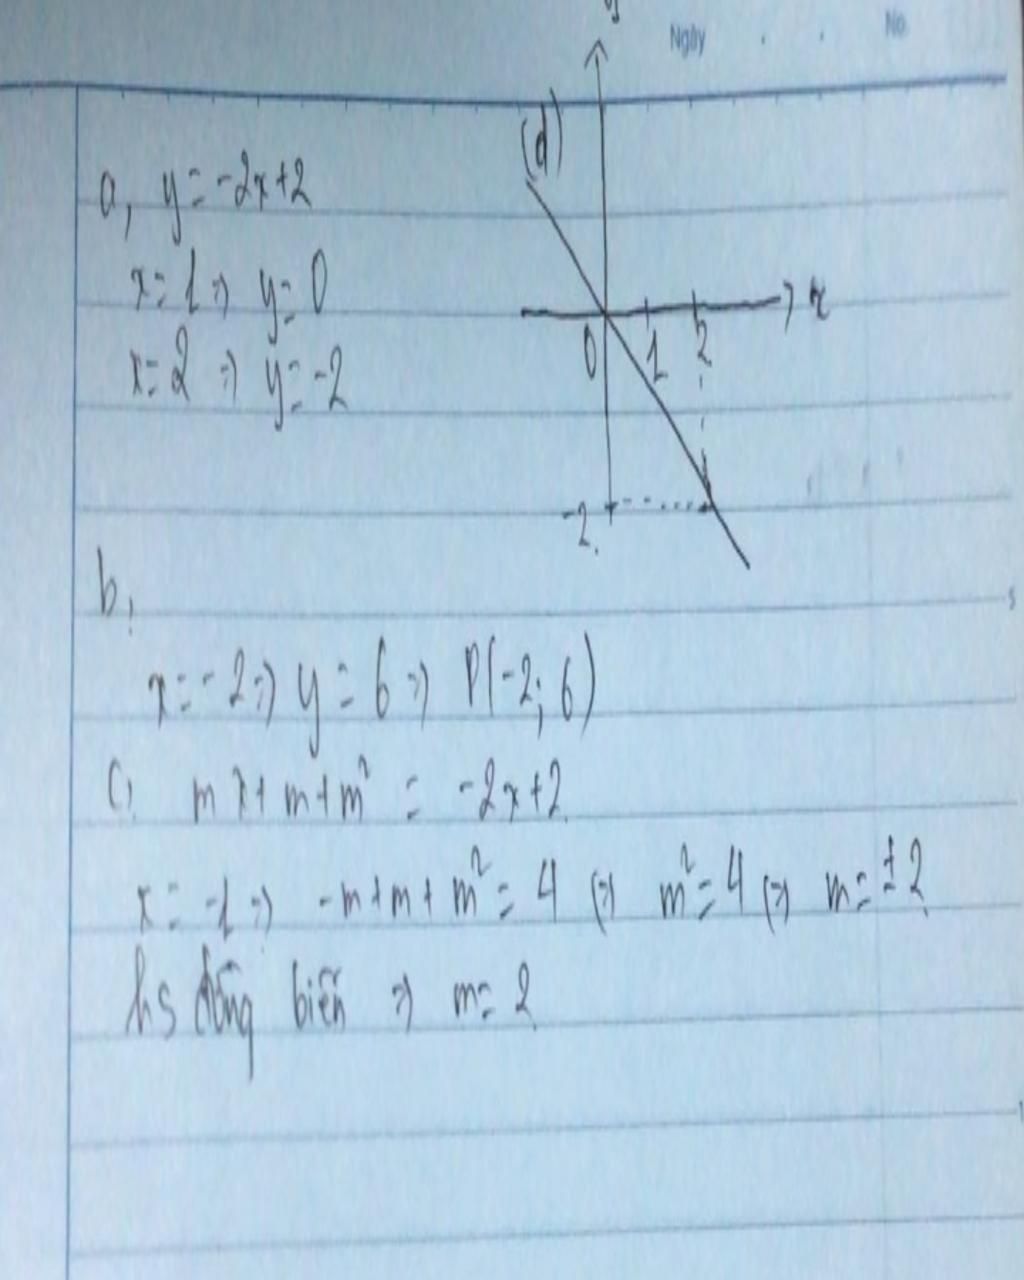 Ngày . . No
y
(d)
a, y = -2x+2
x = 1 => y = 0
x = 2 => y = -2
x
0 1 2
-2
b,
x = -2 => y = 6 => P(-2; 6)
c, mx + m + m² = -2x+2
x = -1 => -m + m + m² = 4 <=> m² = 4 <=> m = ±2
hs đồng biến => m = 2